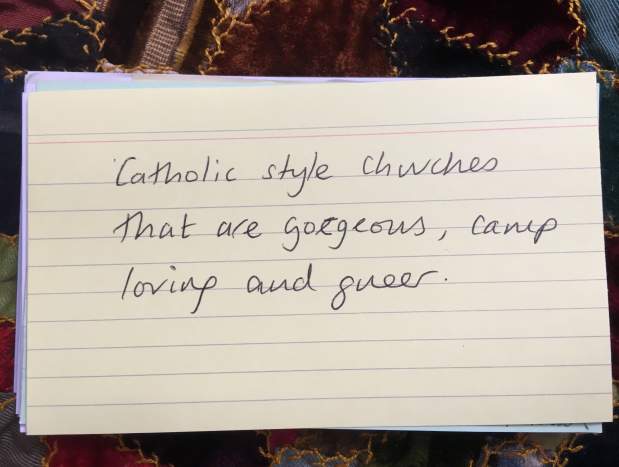 Catholic style churches
that are gorgeous, camp
loving and queer.